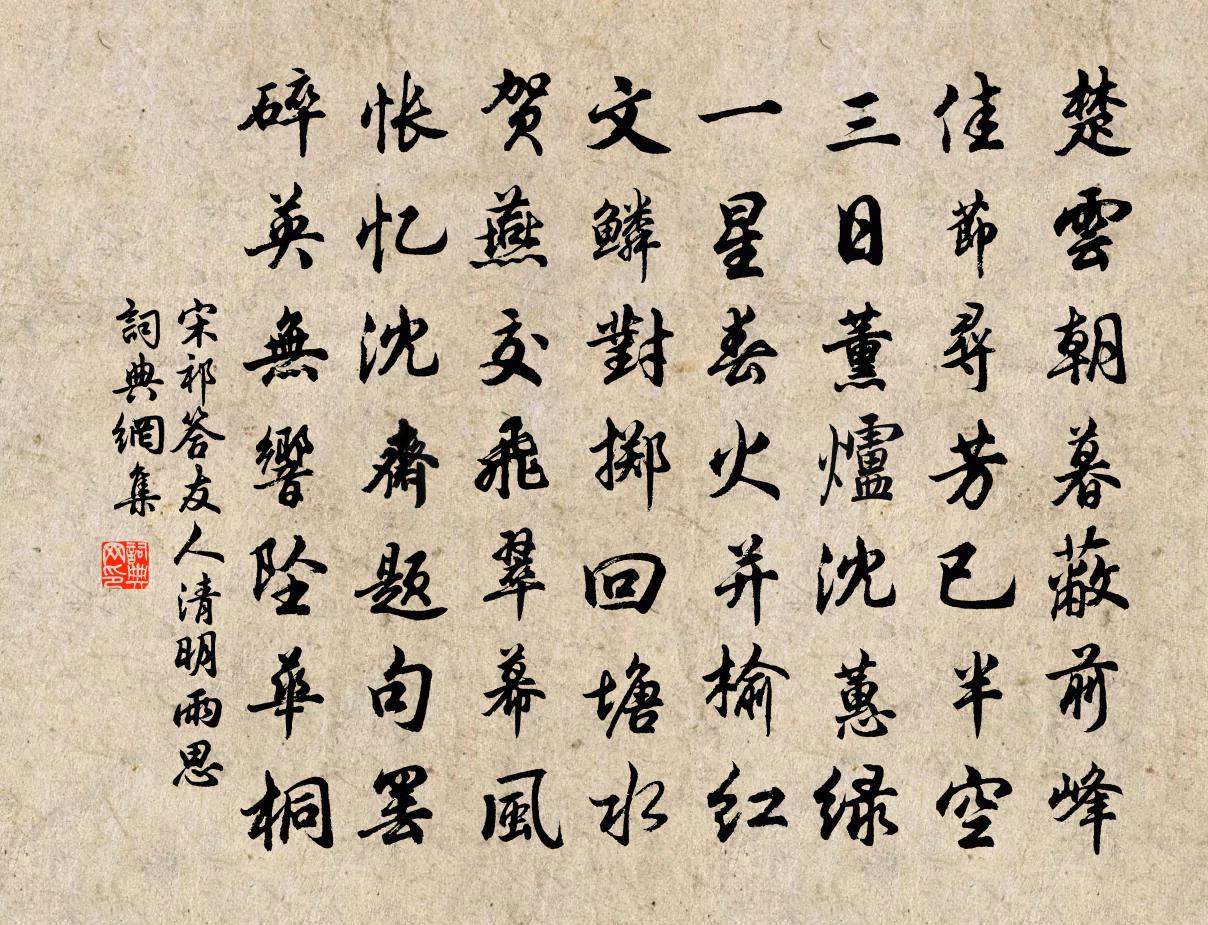 楚雲朝暮蔽前峰
佳節尋芳已半空
三日薰爐沈蕙绿
一星春火并榆红
文鳞對掷回塘水
贺燕交飛翠幕風
怅忆沈齋题句罢
碎英無響坠華桐
宋祁答友人清明雨思
詞典網集
詞典
网印